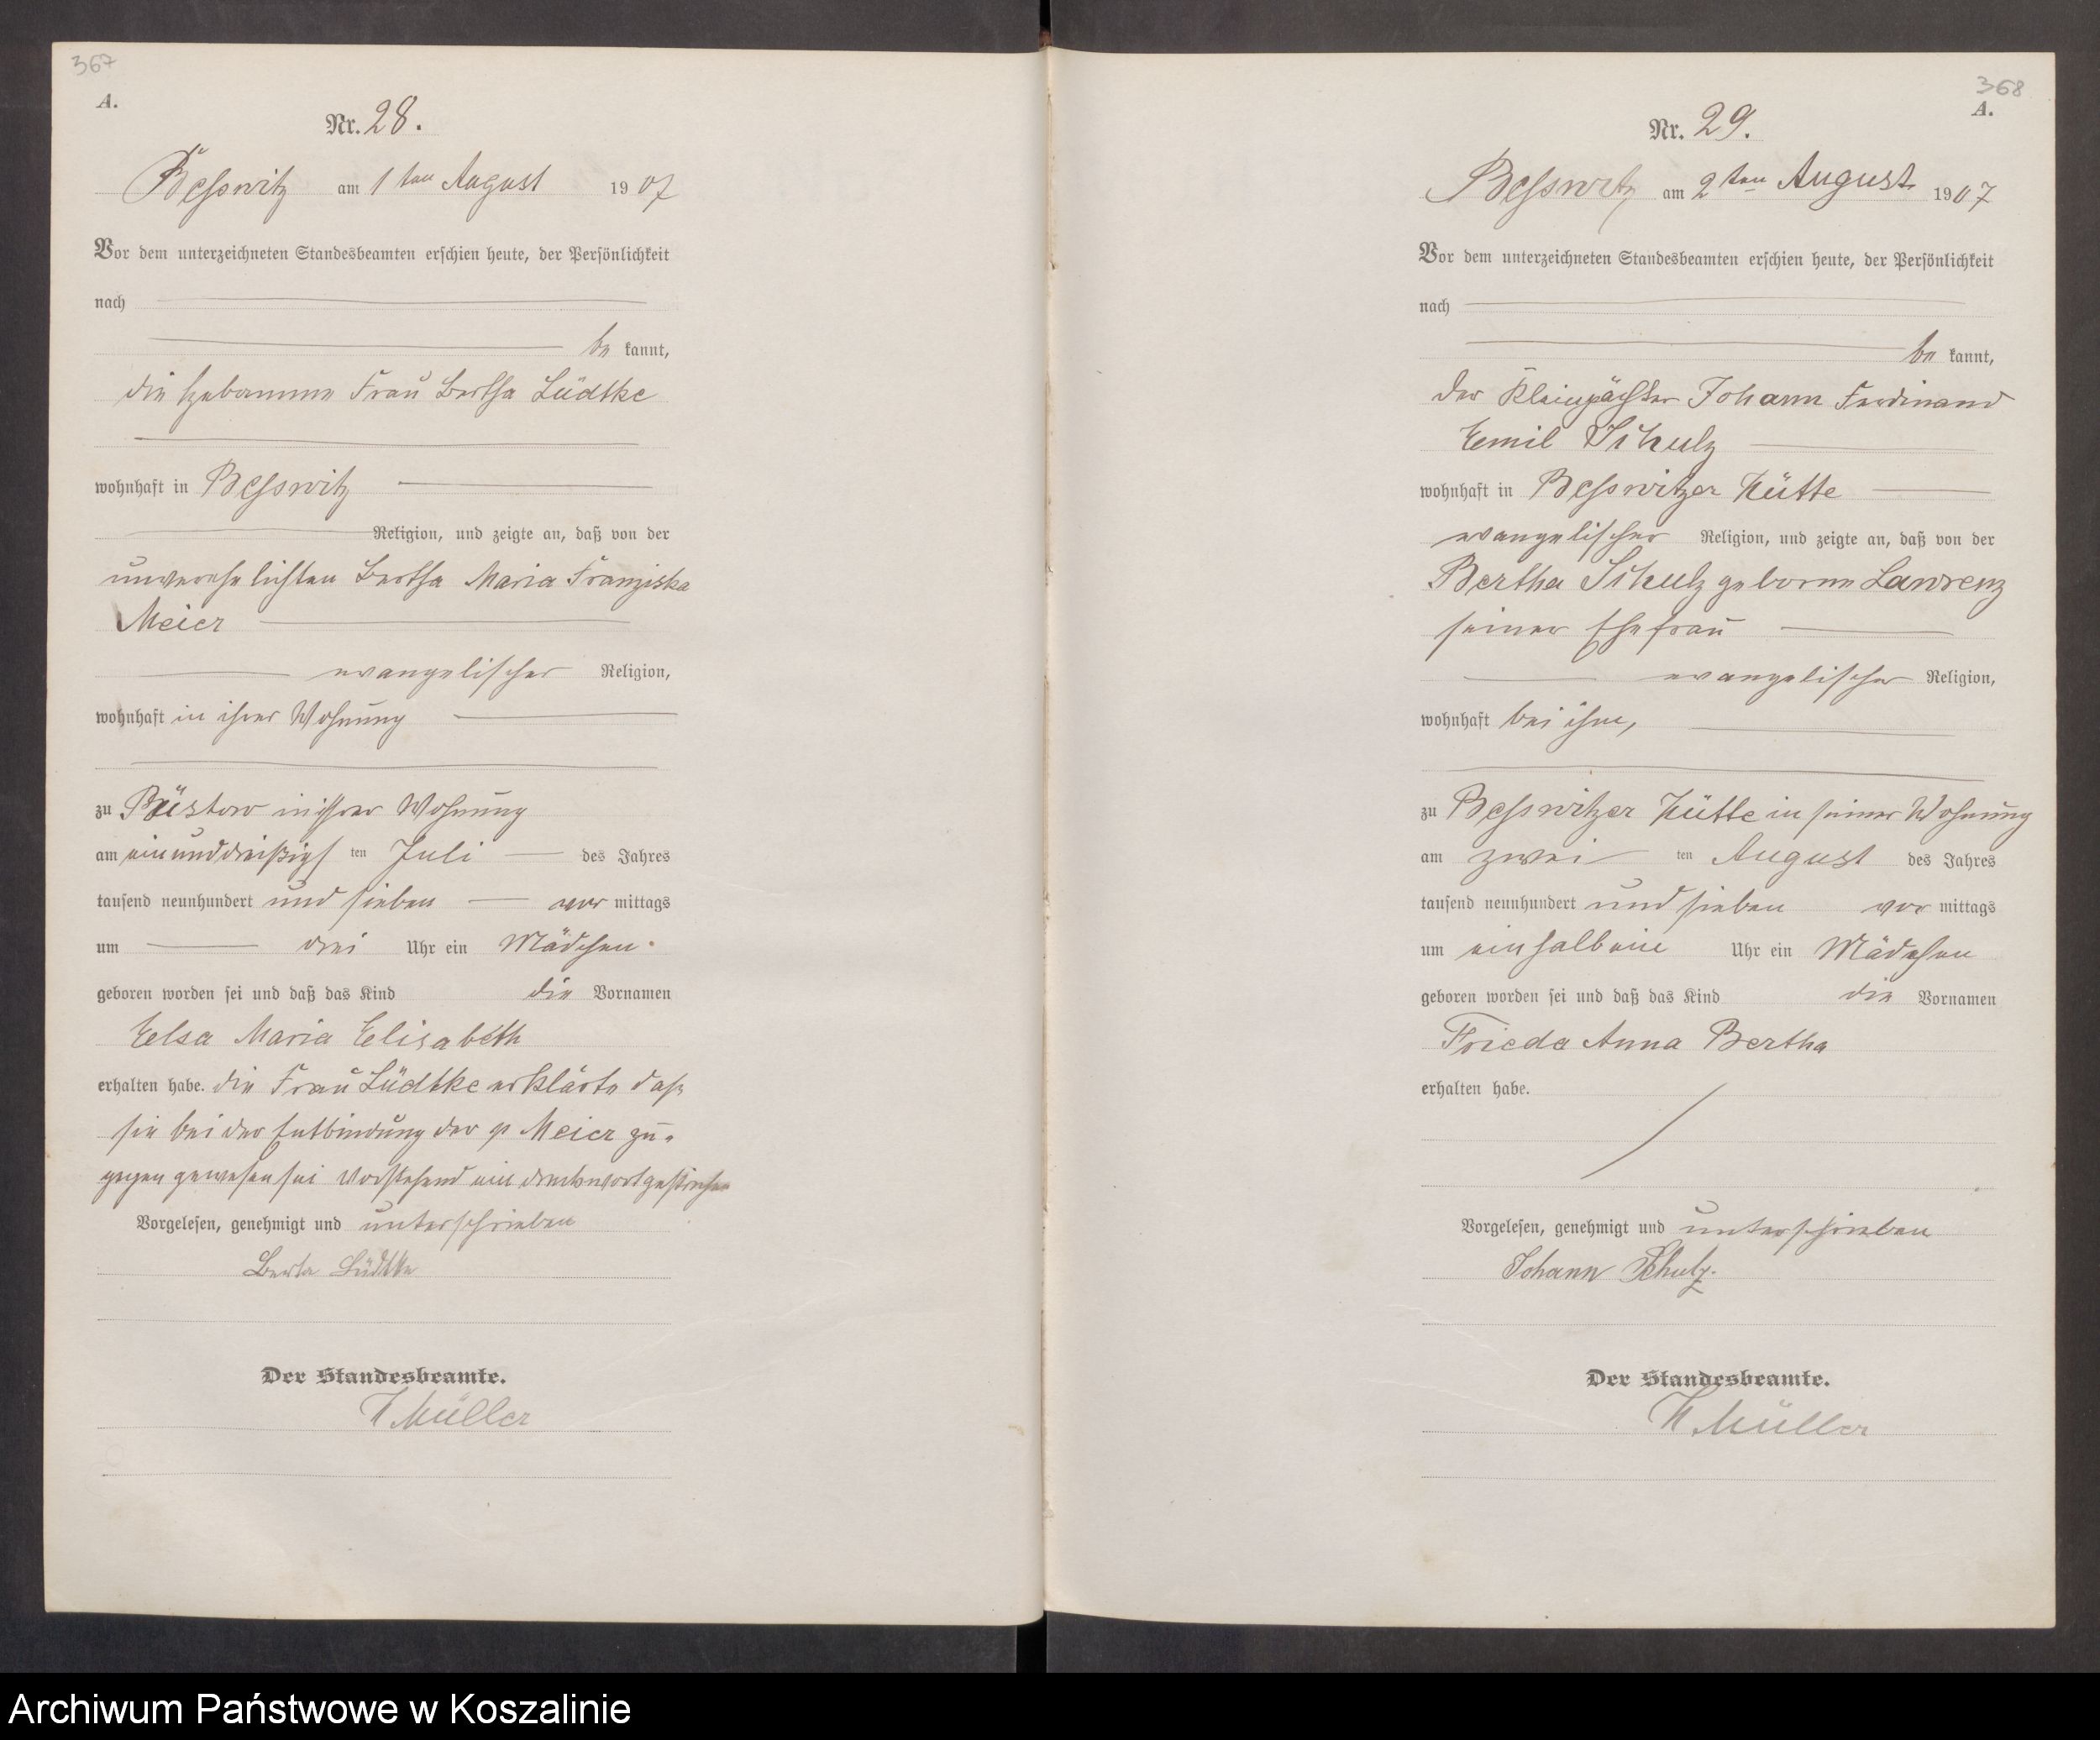 367
A.
Nr. 28.
Besswitz am 1ten August 1907
Vor dem unterzeichneten Standesbeamten erschien heute, der Persönlichkeit
nach
be kannt,
die Hebamme Frau Bertha Lüdtke
wohnhaft in Besswitz
Religion, und zeigte an, daß von der
unverehelichten Bertha Maria Franziska
Meier
evangelischer Religion,
wohnhaft in ihrer Wohnung
zu Püstow in ihrer Wohnung
am einunddreißigs ten Juli des Jahres
tausend neunhundert und sieben vor mittags
um drei Uhr ein Mädchen
geboren worden sei und daß das Kind die Vornamen
Elsa Maria Elisabeth
erhalten habe. die Frau Lüdtke erklärte daß
sie bei der Entbindung der p Meier zu-
gegen gewesen sei Vorstehend ein Druckwort gestrichen
Vorgelesen, genehmigt und unterschrieben
Berta Lüdtke
Der Standesbeamte.
Müller
368
A.
Nr. 29.
Besswitz am 2ten August 1907
Vor dem unterzeichneten Standesbeamten erschien heute, der Persönlichkeit
nach
be kannt,
der Kleinpächter Johann Ferdinand
Emil Schulz
wohnhaft in Besswitzer Hütte
evangelischer Religion, und zeigte an, daß von der
Bertha Schulz geborne Lawrenz
seiner Ehefrau
evangelischer Religion,
wohnhaft bei ihm,
zu Besswitzer Hütte in seiner Wohnung
am zwei ten August des Jahres
tausend neunhundert und sieben vor mittags
um ein halb ein Uhr ein Mädchen
geboren worden sei und daß das Kind die Vornamen
Frieda Anna Bertha
erhalten habe.
Vorgelesen, genehmigt und unterschrieben
Johann Schulz.
Der Standesbeamte.
Müller
Archiwum Państwowe w Koszalinie